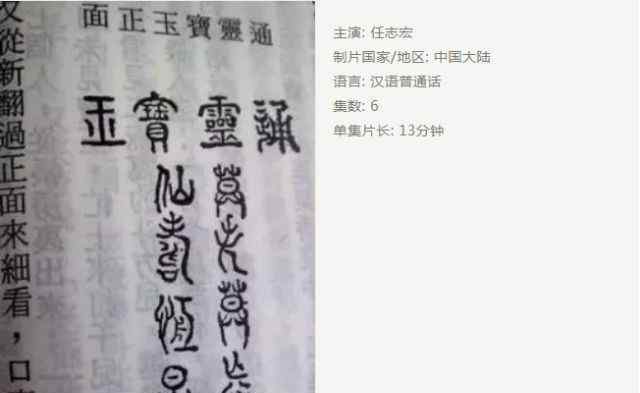 通靈寶玉正面
通靈寶玉
莫失莫
仙壽恆
又從新翻過正面來細看，口
主演: 任志宏
制片国家/地区: 中国大陆
语言: 汉语普通话
集数: 6
单集片长: 13分钟